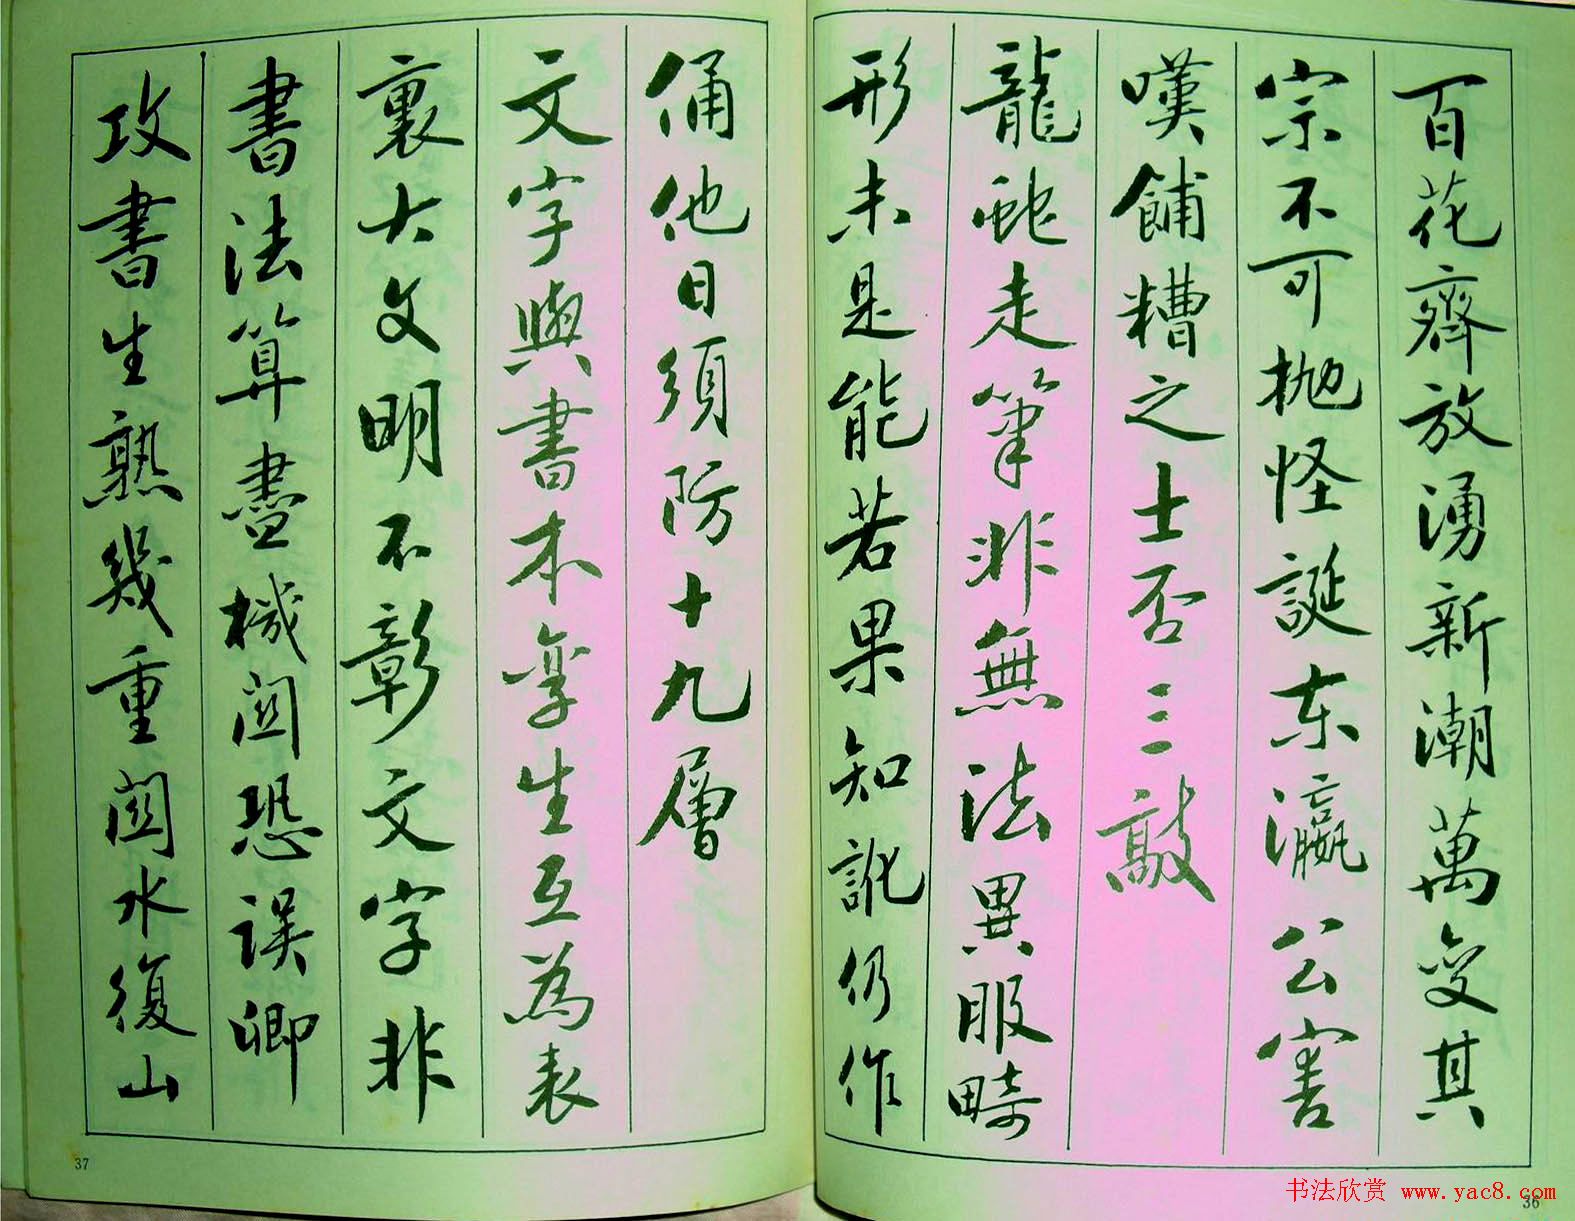 百花齊放湧新潮萬变其
宗不可抛怪誕东瀛公害
嘆餔糟之士否三敲
龍蛇走筆非無法異服畸
形未是能若果知訛仍作
俑他日须防十九層
文字與書本孪生互為表
裏大文明不彰文字非
書法算盡機関恐误卿
攻書生熟幾重関水復山
37
36
书法欣赏 www.yac8.com